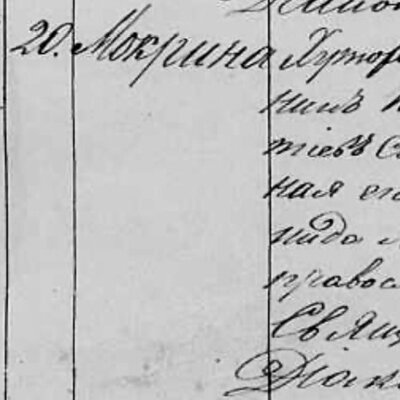 20. Мокрина Хутор
нилъ
тіевъ С
ная ег
нида
правос
Свящ
Діак